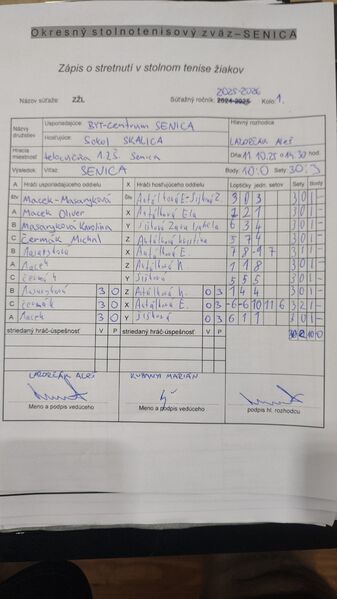 Okresný stolnotenisový zväz–SENICA
Zápis o stretnutí v stolnom tenise žiakov
2025-2026
Názov súťaže: ZŽL Súťažný ročník: 2024-2025 Kolo: 1.
Názvy družstiev Usporiadajúce: BYT-Centrum SENICA Hlavný rozhodca
Hosťujúce: Sokol SKALICA LAZORČÁK Aleš
Hracia miestnosť telocvičňa 1.ZŠ Senica Dňa: 11.10.25 o 14.30 hod.
Výsledok Víťaz: SENICA Body 10:0 Sety 30:3
A Hráči usporiadajúceho oddielu X Hráči hosťujúceho oddielu Loptičky jedn. setov Sety Body
štv Macek-Masaryková štv 3 0 3 3 0 1 -
A Macek Oliver X 3 0 1 -
B Masaryková Karolína Y 6 3 4 3 0 1 -
C Čermák Michal Z 5 7 4 3 0 1 -
B Masaryková X 7 8 -9 7 3 1 1 -
A Macek Z 1 1 8 3 0 1 -
C Čermák Y 5 5 5 3 0 1 -
B Masaryková 3 0 Z 0 3 1 4 4 3 0 1 -
C Čermák 3 0 X 0 3 -6 -6 10 11 6 3 2 1 -
A Macek 3 0 Y 0 3 6 1 1 3 0 1 -
striedaný hráč-úspešnosť V P striedaný hráč-úspešnosť V P 10:0
LAZORČÁK Aleš KUBÁNYI MARIÁN
Meno a podpis vedúceho Meno a podpis vedúceho podpis hl. rozhodcu